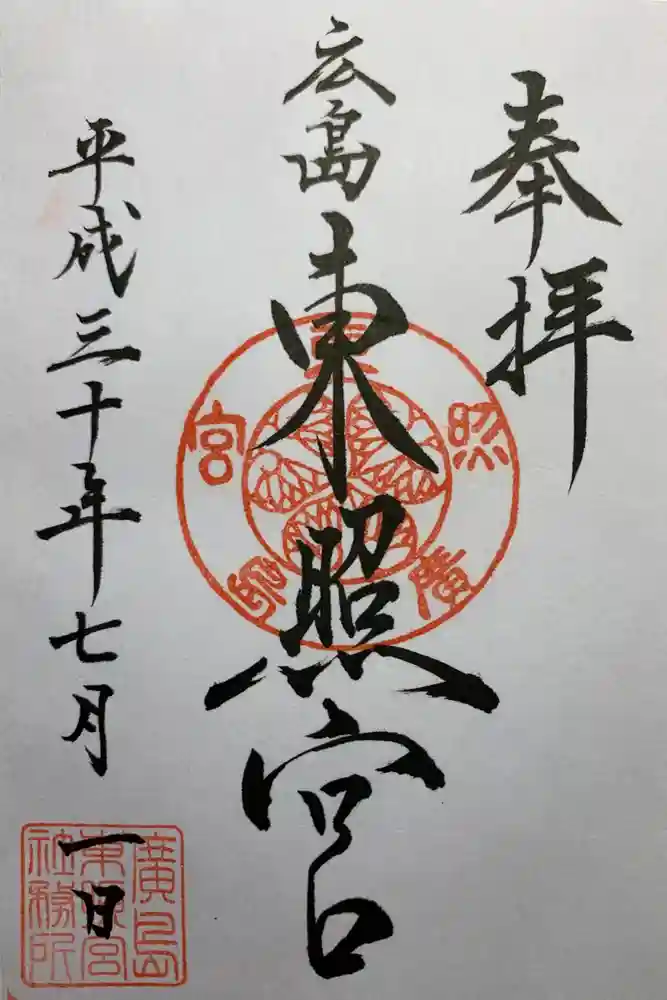 奉拝
広島
東照宮
平成三十年七月一日
東
照
宮
廣
島
廣島
東照宮
社務所